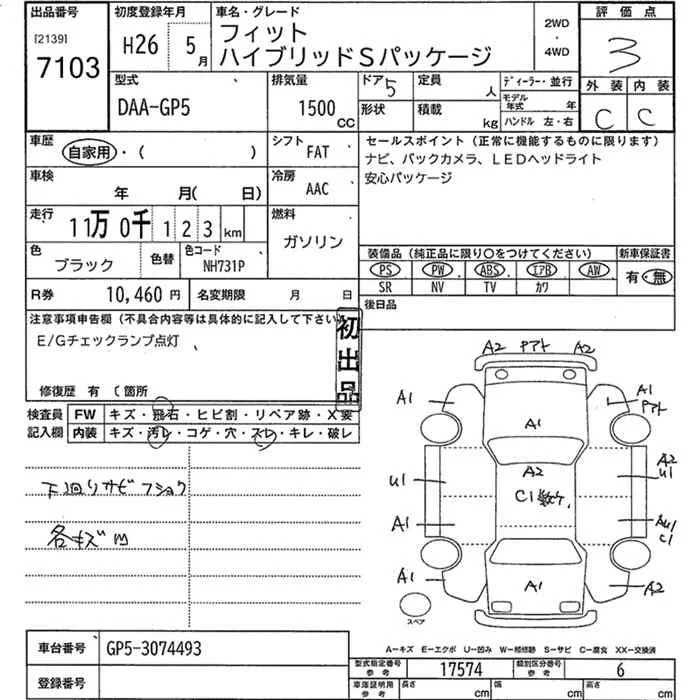 出品番号 初度登録年月 車名・グレード 2WD・4WD 評価点
[2139] 7103 H26 5月 フィット 3
ハイブリッドSパッケージ
外装 内装
C C
型式 排気量 ドア 5 定員 人 ディーラー・並行
DAA-GP5 1500CC 形状 積載 kg モデル年式 年
ハンドル 左・右
車歴 自家用・( ) シフト FAT セールスポイント(正常に機能するものに限ります)
ナビ、バックカメラ、LEDヘッドライト
安心パッケージ
車検 年 月(日) 冷房 AAC
走行 11万0千123km 燃料 ガソリン
色 ブラック 色替 色コード NH731P
装備品(純正品に限り○をつけてください) 新車保証書
PS PW ABS エアB AW 有・無
SR NV TV カワ
R券 10,460円 名変期限 月 日 後日品
注意事項申告欄(不具合内容等は具体的に記入して下さい
E/Gチェックランプ点灯
初出品
修復歴 有 (箇所
検査員 FW キズ・飛石・ヒビ割・リペア跡・X要
記入欄 内装 キズ・汚レ・コゲ・穴・スレ・キレ・破レ
下廻りサビフショク
各キズm
A2 Pアト A2
A1 A1
Pアト
A1
A2
U1 A2
U1
C1数ヶ
A1 AU1
C1
A1 A1 A2
スペア
A=キズ E=エクボ U=凹み W=補修跡 S=サビ C=腐食 XX=交換済
車台番号 GP5-3074493
型式指定番号 参考 17574 類別区分番号 参考 6
登録番号
車庫証明用 参考 長さ cm 幅 cm 高さ cm